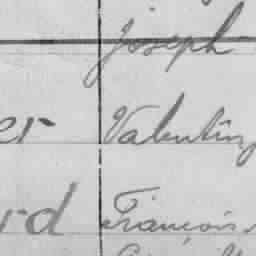 Joseph
er Valentin
rd François